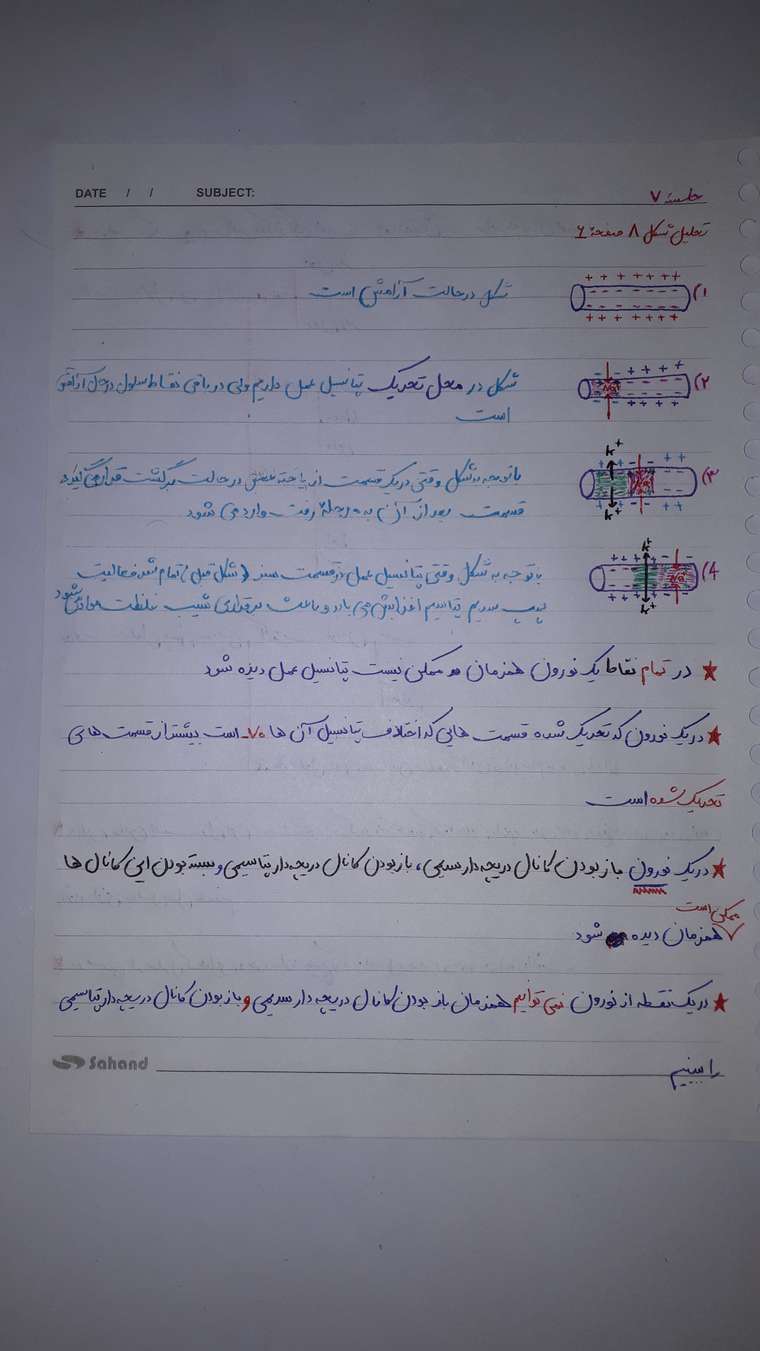 DATE / / SUBJECT:
جلسه ۷
تحلیل شکل ۸ صفحه ۶
۱) شکل در حالت آرامش است
۲) شکل در محل تحریک پتانسیل عمل داریم ولی در باقی نقاط سلول در حال آرامش
است
Na+
۳) با توجه به شکل وقتی در یک قسمت از یاخته عصبی در حالت برگشت قرار می‌گیرد
قسمت بعد از آن به مرحله رفت وارد می شود
K+
Na+
K+
۴) با توجه به شکل وقتی پتانسیل عمل در قسمت سبز (شکل قبل) تمام شد فعالیت
پمپ سدیم پتاسیم افزایش می یابد و باعث برقراری شیب غلظت می‌شود
K+
Na+
K+
★ در تمام نقاط یک نورون همزمان ممکن نیست پتانسیل عمل دیده شود
★ در یک نورون که تحریک شده قسمت هایی که اختلاف پتانسیل آن ها ۷۰- است بیشتر از قسمت های
تحریک شده است
★ در یک نورون باز بودن کانال دریچه دار سدیمی، باز بودن کانال دریچه دار پتاسیمی و بسته بودن این کانال ها
ممکن است
همزمان دیده شود
★ در یک نقطه از نورون نمی توانیم همزمان باز بودن کانال دریچه دار سدیمی و باز بودن کانال دریچه دار پتاسیمی
را ببینیم
Sahand